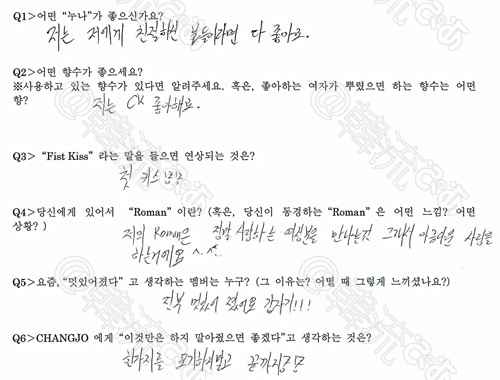 Q1>어떤 "누나"가 좋으신가요?
저는 저에게 친절하신 분들이라면 다 좋아요.
Q2>어떤 향수가 좋으세요?
※사용하고 있는 향수가 있다면 알려주세요. 혹은, 좋아하는 여자가 뿌렸으면 하는 향수는 어떤
향?
저는 CK 좋아해요.
Q3> "Fist Kiss" 라는 말을 들으면 연상되는 것은?
첫 키스
Q4>당신에게 있어서 "Roman" 이란? (혹은, 당신이 동경하는 "Roman" 은 어떤 느낌? 어떤
상황? )
저의 Roman은 정말 사랑하는 여성분을 만나는것 그래서 아름다운 사랑을
하는거에요 ^.^
Q5>요즘, "멋있어졌다" 고 생각하는 멤버는 누구? (그 이유는? 어떨 때 그렇게 느끼셨나요?)
전부 멋있어 졌어요 갑자기!!!
Q6>CHANGJO 에게 "이것만은 하지 말아줬으면 좋겠다"고 생각하는 것은?
한가지를 포기하지말고 끝까지
@韓流ぴあ
@韓流ぴあ
@韓流ぴあ
@韓流ぴあ